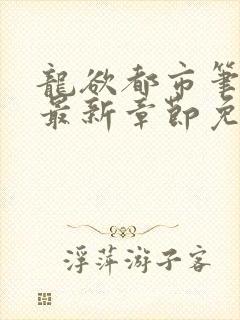 龍欲都市筆
最新章節免
浮萍游子客